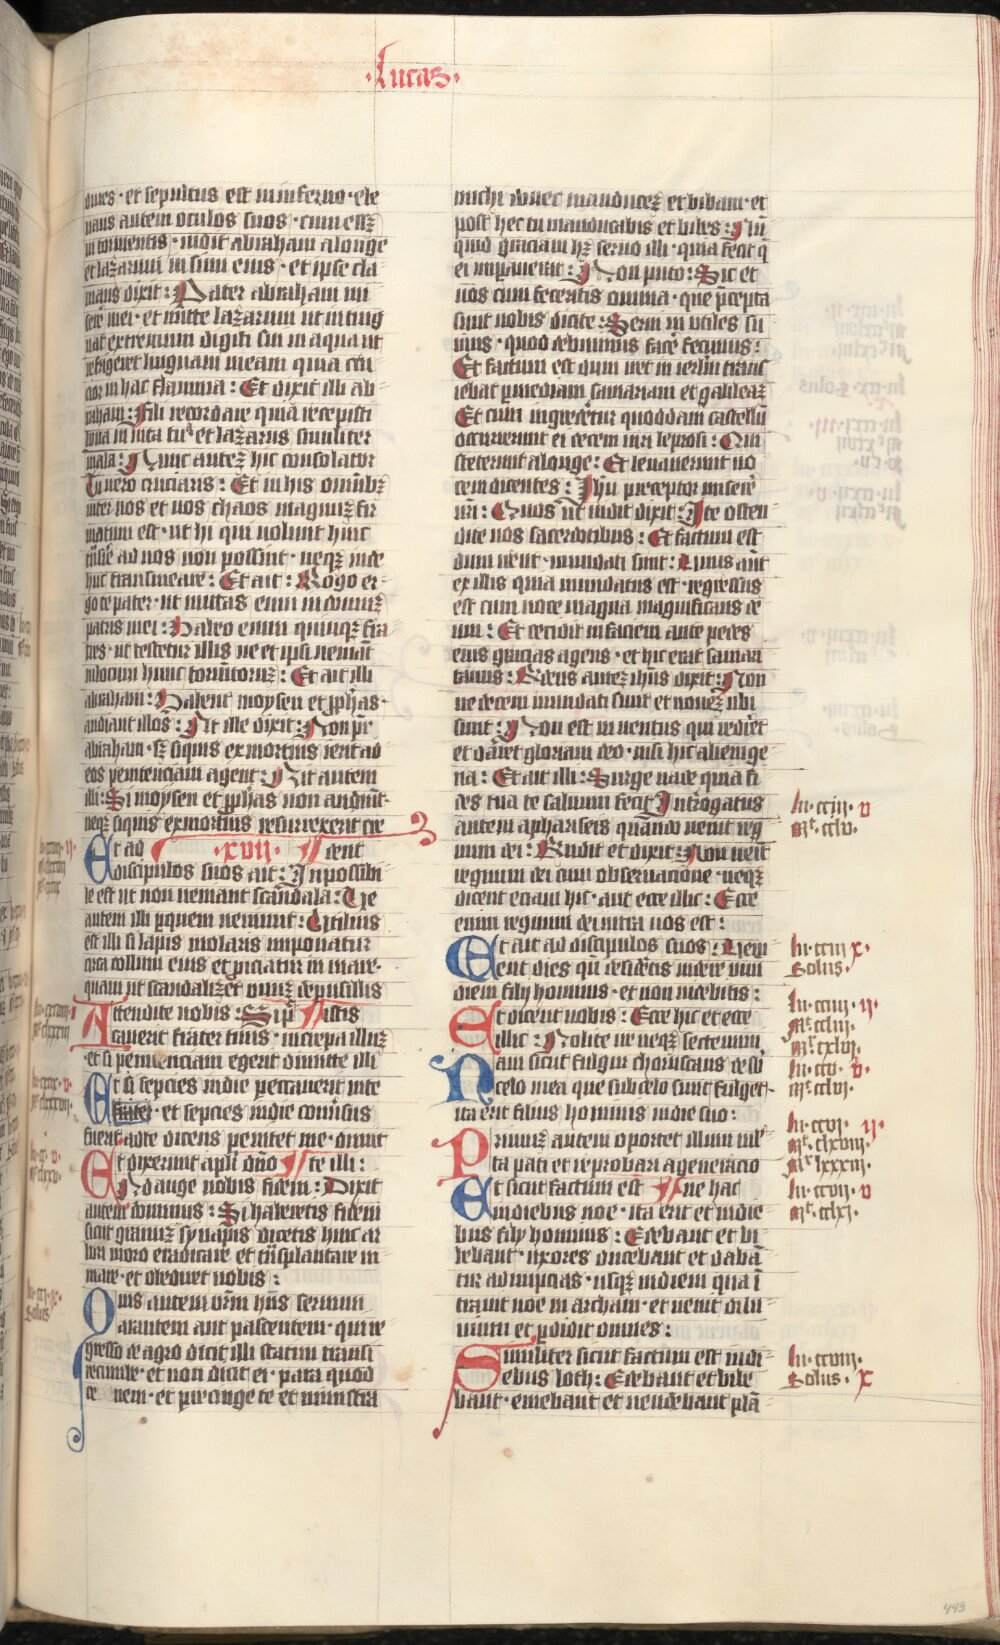 ·Lucas·
diues · et sepultus est in inferno · ele
uans autem oculos suos · cum essʒ
in tormentis · uidit abraham a longe
et lazarum in sinu eius · et ipse cla
mans dixit : Pater abraham mi
sere mei · et mitte lazarum ut inting
uat extremum digiti sui in aqua ut
refrigeret linguam meam quia cru
cior in hac flamma : Et dixit illi ab
raham : Fili recordare quia recepisti
bona in uita tua et lazarus similiter
mala : Nunc auteʒ hic consolatur
Tu uero cruciaris : Et in his omnibʒ
inter nos et uos chaos magnuʒ fir
matum est · ut hi qui uolunt hinc
tnsire ad uos non possint · neqʒ inde
huc transmeare : Et ait : Rogo er-
go te pater · ut mittas eum in domuʒ
patris mei : Habeo enim quinqʒ fra
tres · ut testetur illis ne et ipsi ueniāt
in locum hunc tormentoruʒ : Et ait illi
abraham : Habent moysen et pphas ·
audiant illos : At ille dixit : Non pr̄
abraham · sʒ siquis ex mortuis ierit ad
eos penitenciam agent : Ait autem
illi : Si moysen et pphas non audiunt ·
neqʒ siquis ex mortuis resurrexerit cre
Et ad ·xvii· dent
discipulos suos ait : Inpossibi
le est ut non ueniant scandala : Ue
autem illi p quem ueniunt : Utilius
est illi si lapis molaris imponatur
circa collum eius et piciatur in mare ·
quam ut scandalizet unuʒ de pusillis
Attendite uobis : Si p̄ istis
cauerit frater tuus · increpa illuʒ
et si penitenciam egerit dimitte illi
Et si sepcies in die peccauerit in te
· et sepcies in die conuersus
fuerit ad te dicens penitet me · dimit
Et dixerunt apli dn̄o te illi :
Adauge nobis fidem : Dixit
autem dominus : Si haberetis fidem
sicut granuʒ synapis dicetis huic ar
bori moro eradicare et tnsplantare in
mare · et obediret uobis :
Quis autem urm̄ hn̄s seruum
arantem aut pascentem · qui re
gresso de agro dicit illi statim transi
recumbe · et non dicit ei · para quod
ce nem · et precinge te et ministra
michi donec manducem et bibam · et
post hec tu manducabis et bibes : Nū
quid graciam hʒ seruo illi · quia fecit q̄
ei imperauerat : Non puto : Sic et
uos cum feceritis omnia · que p̄cepta
sunt uobis dicite : Serui inutiles su
mus · quod debuimus face fecimus :
Et factum est dum iret in ierlm trans
iebat p mediam samariam et galileaʒ
Et cum ingrederetur quoddam castellū
occurrerunt ei decem uiri leprosi : Qui
steterunt a longe : Et leuauerunt uo
cem dicentes : Ihu preceptor miserere
nri : Quos ut uidit dixit : Ite osten
dite uos sacerdotibus : Et factum est
dum irent · mundati sunt : Unus aut
ex illis quia mundatus est · regressus
est cum uoce magna magnificans de
um : Et cecidit in faciem ante pedes
eius gracias agens · et hic erat samari
tanus : Rn̄dens auteʒ ihus dixit : Non
ne decem mundati sunt et noueʒ ubi
sunt : Non est inuentus qui rediret
et daret gloriam deo · nisi hic alienige
na : Et ait illi : Surge uade quia fi
des tua te saluum fecit Introgatus
autem a phariseis quando uenit reg
num dei : Rn̄dit et dixit : Non uenit
regnum dei cum obseruacione · neqʒ
dicent ecce hic · aut ecce illic : Ecce
enim regnum dei intra uos est :
Et ait ad discipulos suos : Ueni
ent dies qn̄ desideretis uidere unū
diem filij hominis · et non uidebitis :
Et dicent uobis : Ecce hic et ecce
illic : Nolite ire neqʒ sectemini
Nam sicut fulgur choruscans de sb̄
celo in ea que sub celo sunt fulget ·
ita erit filius hominis in die suo :
Primuʒ autem oportet illum ml̄
ta pati et reprobari a generacio
Et sicut factum est ne hac
in diebus noe · ita erit et in die
bus filij hominis : Edebant et bi
bebant · uxores ducebant et dabā
tur ad nupcias · usqʒ in diem qua ī
trauit noe in archam · et uenit dilu
uium et pdidit omnes :
Similiter sicut factum est in di
ebus loth : Edebant et bibe
bant · emebant et uendebant plā
lu · cciii · v
mt · cclv ·
lu · cciii x ·
Solus ·
lu · cciiii · ii ·
mt cclii ·
mr cxlvi ·
lu · ccv · v ·
mt cclvi ·
lu · ccvi · ii ·
mt · clxviii ·
mr lxxxiii ·
lu · ccvii · v
mt · cclxi ·
lu · ccviii ·
Solus · x
449